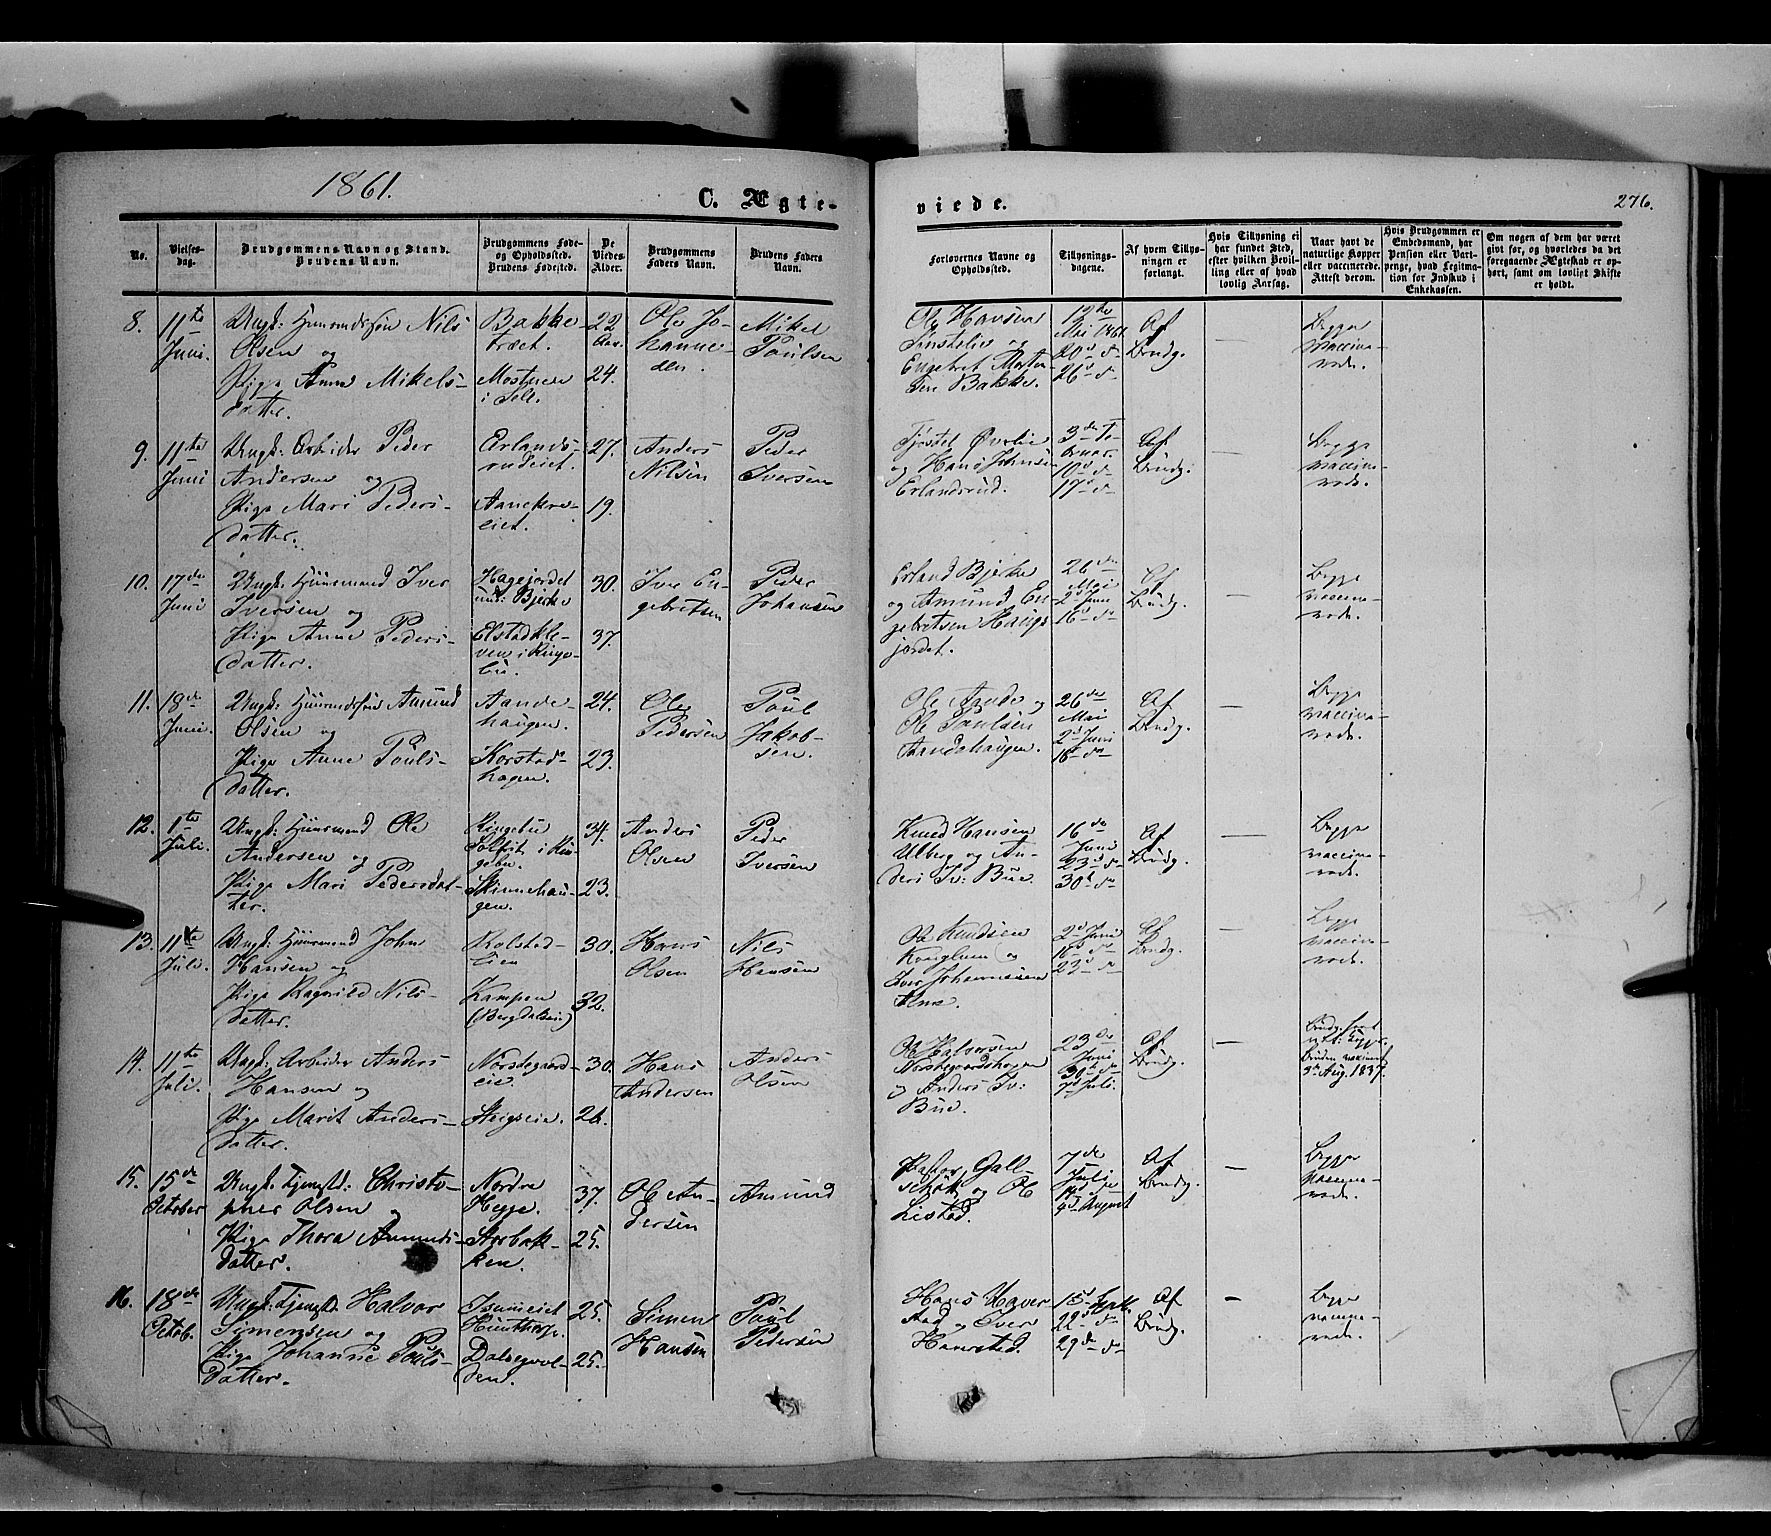 1861.
C. Ægte-
viede.
276.
No.
Vielses-
dag.
Brudgommens Navn og Stand.
Brudens Navn.
Brudgommens Føde-
og Opholdssted.
Brudens Fødested.
De
Viedes
Alder.
Brudgommens
Faders Navn.
Brudens Faders
Navn.
Forlovernes Navne og
Opholdssted.
Tillysnings-
dagene.
Af hvem Tillys-
ningen er
forlangt.
Hvis Tillysning ei
har fundet Sted,
efter hvilken Bevil-
ling eller af hvad
lovlig Aarsag.
Naar havt de
naturlige Kopper
eller vaccinerede.
Attest derom.
Hvis Brudgommen er
Embedsmand, har
Pension eller Vart-
penge, hvad Legitima-
tion for Indskud i
Enkekassen.
Om nogen af dem har været
gift før, og hvorledes da det
foregaaende Ægteskab er op-
hørt, samt om lovligt Skifte
er holdt.
8. 11te
Juni.
Ungk: Huusmandssøn Nils
Olsen og
Pige Anne Mikels-
datter.
Bakke-
træet.
i Sell.
22
24.
Ole Jo-
hanne-
sen.
Mikel
Poulsen
Ole Hansen
og
Engebret Morten-
sen Bakke.
12te
Mai 1861
20d d
26d d
Af
Brudg.
Begge
vaccine-
rede.
9. 11te
Juni
Ungk: Arbeider Peder
Andersen og
Pige Mari Peders-
datter.
Erlands-
rudeiet.
27.
19.
Anders
Nilsen
Peder
Iversen
Tjøstel Øverlie
og Hans Johnsen
Erlandsrud.
3die Fe-
bruar.
10d d
17d d
Af
Brudg.
Begge
vaccine-
rede.
10. 17de
Juni
Ungk: Huusmand Iver
Iversen og
Pige Anne Peders-
datter.
Hagejordet
und: Bjerke
Elstadkle-
ven i Ringe-
bu.
30.
37.
Iver En-
gebretsen
Peder
Johansen
Erland Bjerke
og Amund En-
gebretsen Hauge-
jordet.
26de
Mai
2d Juni
16d d
Af
Brudg.
Begge
vaccine-
rede.
11. 18de
Juni
Ungk: Huusmandssøn Amund
Olsen og
Pige Anne Pouls-
datter.
Aande-
haugen.
Korstad-
hagen.
24.
23.
Ole
Pedersen
Poul
Jakob-
sen.
Ole Ande og
Ole Paulsen
Aandehaugen.
26de
Mai
2d Juni
16d d
Af
Brudg.
Begge
vaccine-
rede.
12. 1te
Juli.
Ungk: Huusmand Ole
Andersen og
Pige Mari Pedersdat-
ter.
Ringebu
i Rin-
gebu.
Skinnehau-
gen.
34.
23.
Anders
Olsen
Peder
Iversen
Knud Hansen
Ulberg og An-
ders Iv: Bue.
16de
Juni
23d d
30d d
Af
Brudg.
Begge
vaccine-
rede.
13. 11te
Juli.
Ungk: Huusmand John
Hansen og
Pige Ragnild Nils-
datter.
Rolstad-
lien
Kampen
(Bergdalseie)
30.
32.
Hans
Olsen
Nils
Hansen
Ole Knudsen
og
Iver Johannessen
2d Juni
16d d
23d d
Af
Brudg.
Begge
vaccine-
rede.
14. 11te
Juli.
Ungk: Arbeider Anders
Hansen og
Pige Marit Anders-
datter.
Norstegaards-
eie.
Steigseie.
30.
26.
Hans
Andersen
Anders
Olsen
Ole Halvorsen
Norstegaardshagen
og Anders Iv:
Bue.
23de
Juni
30d d
7d Juli.
Af
Brudg.
Brudg. havt
nat: Kopper
Bruden vaccineret
3d Aug. 1837.
15. 15de
October
Ungk: Tjenestd: Christo-
pher Olsen og
Pige Thora Amunds-
datter.
Nordre
Hegge.
Storbak-
ken.
37.
25.
Ole An-
dersen
Amund
Pastor Gall-
schøtt og Ole
Listad.
7de
Julie
14d d
4d August
Af
Brudg.
Begge
vaccine-
rede.
16. 18de
Octob.
Ungk: Tjenestd: Halvor
Simensen og
Pige Johanne Pouls-
datter.
Hunthorp.
Dalsegvol-
den.
25.
25.
Simen
Hansen
Poul
Pedersen
Hans Haver-
stad og Iver
Haverstad.
15d Sept.
22d d
29de d
Af
Brudg.
Begge
vaccine-
rede.